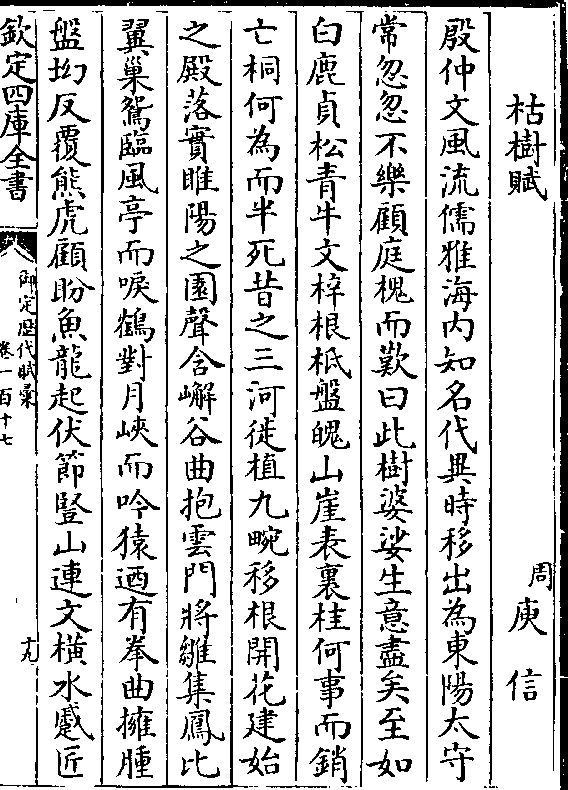 枯樹賦
周庾信
殷仲文風流儒雅海內知名代異時移出為東陽太守
常忽忽不樂顧庭槐而歎曰此樹婆娑生意盡矣至如
白鹿貞松青牛文梓根柢盤魄山崖表裏桂何事而銷
亡桐何為而半死昔之三河徙植九畹移根開花建始
之殿落實睢陽之園聲含嶰谷曲抱雲門將雛集鳳比
翼巢鴛臨風亭而唳鶴對月峽而吟猿迺有拳曲擁腫
盤坳反覆熊虎顧盼魚龍起伏節豎山連文橫水蹙匠
欽定四庫全書
御定歴代賦彙
卷一百十七
十九